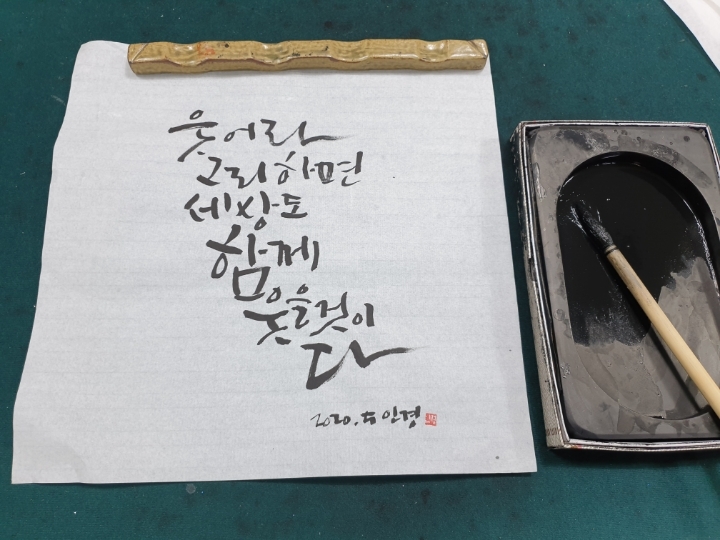 웃어라
그리하면
세상도
함께
웃을것이
다
2020. 인경